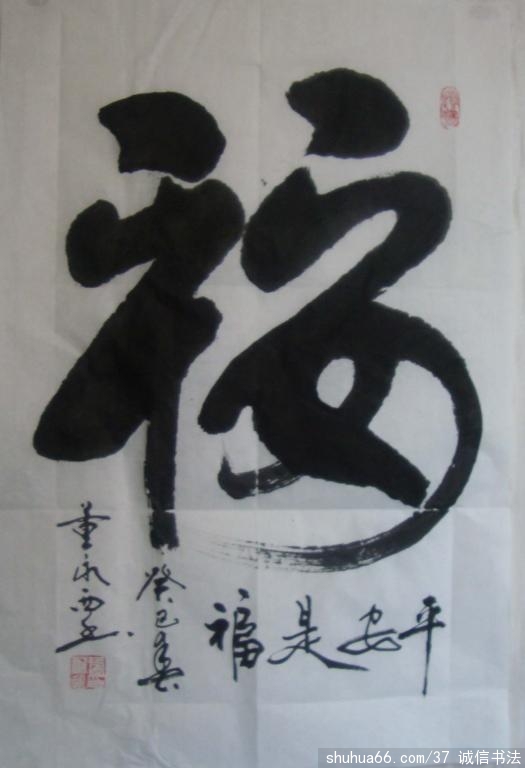 福
平安是福
癸巳春
董永西书
shuhua66.com/37 诚信书法